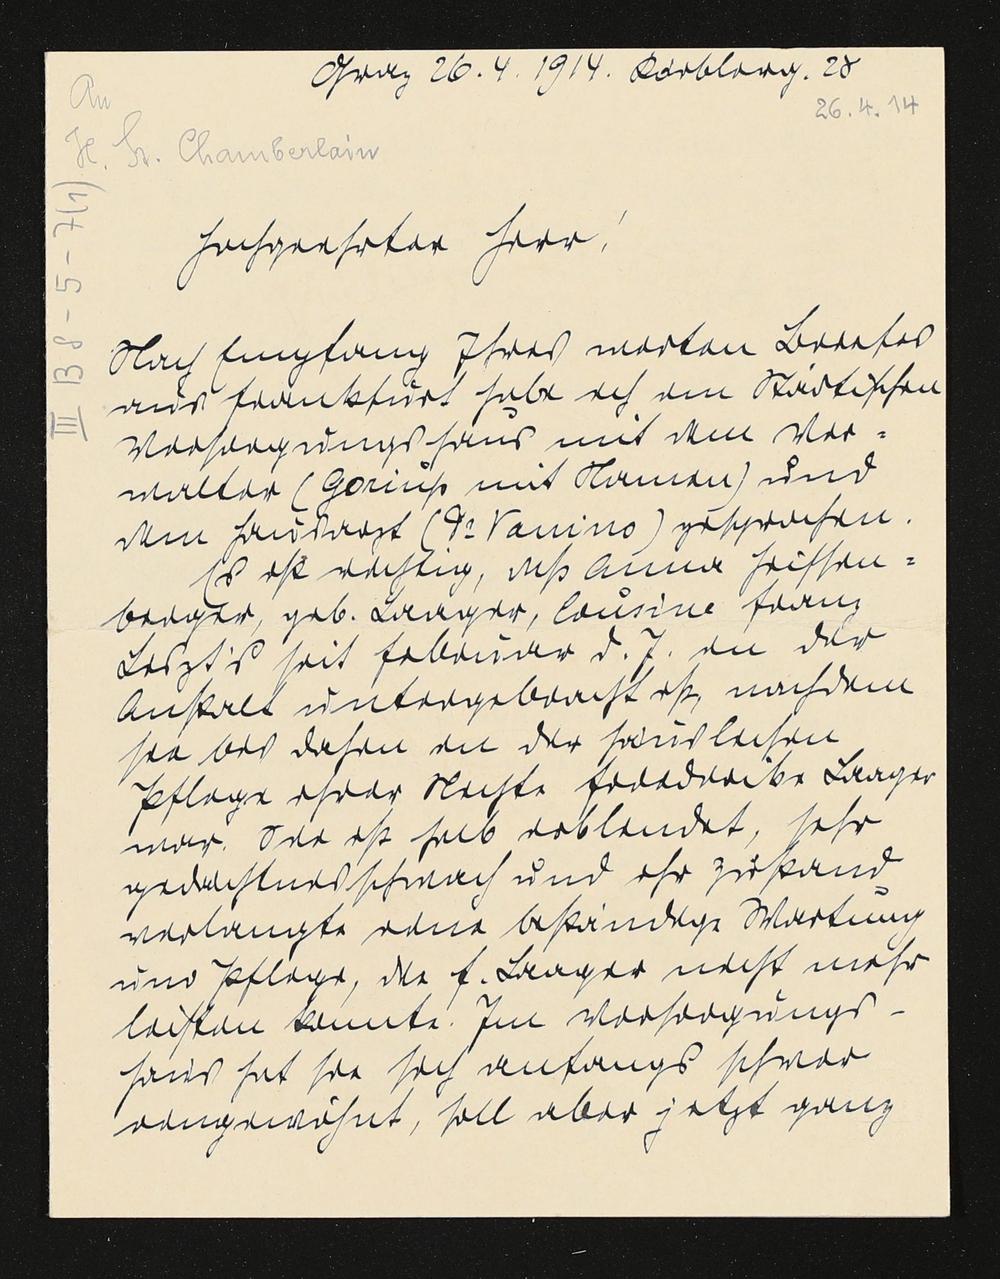 Graz 26.4.1914. Körblerg. 28
26.4.14
An
H. St. Chamberlain
III B 8-5-7(1)
Hochgeehrter Herr!
Nach Empfang Ihres werten Briefes
aus Frankfurt habe ich im Städtischen
Versorgungshaus mit dem Ver=
walter (Goriup mit Namen) und
dem Hausarzt (Dr Vanino) gesprochen.
Es ist richtig, daß Anna Heissen=
berger, geb. Laager, Cousine Franz
Liszt's seit Februar d. J. in der
Anstalt untergebracht ist, nachdem
sie bis dahin in der häuslichen
Pflege ihrer Nichte Friederike Laager
war. Sie ist halb erblindet, sehr
gedächtnisschwach und ihr Zustand
verlangte eine beständige Wartung
und Pflege, die F. Laager nicht mehr
leisten konnte. Im Versorgungs-
haus hat sie sich anfangs schwer
eingewöhnt, soll aber jetzt ganz